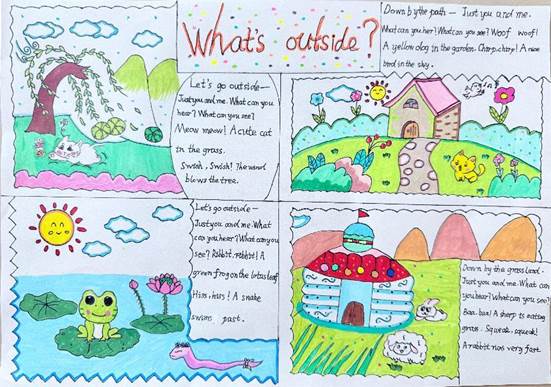 What's outside?
Let's go outside—
Just you and me. What can you
hear? What can you see?
Meow meow! A cute cat
in the grass.
Swish, Swish! The wand
blows the tree.
Down by the path — Just you and me.
What can you her! What can you see! Woof woof!
A yellow dog in the garden. Charp, charp! A nice
bird in the sky.
Let's go outside —
Just you and me. What
can you hear? What can you
see? Rabbit, rabbit! A
green frog on the lotus leaf
Hiss, hiss! A snake
swims past.
Down by the grass land -
Just you and me. What can
you hear? What can you see?
Baa, baa! A sheep is eating
grass. Squeak, squeak!
A rabbit runs very fast